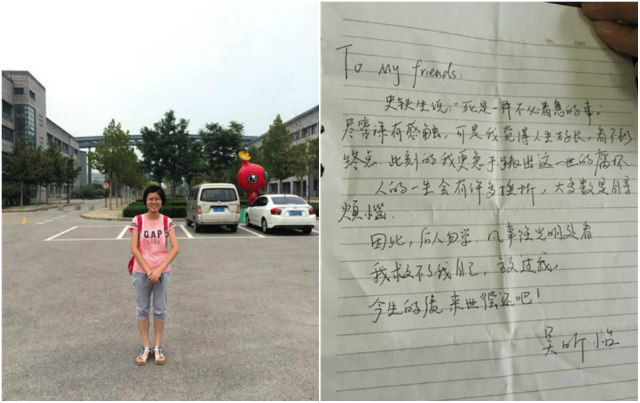 GAP
No. Date
To My friends:
史铁生说:"死是一件不必着急的事."
尽管深有感触, 可是我觉得人生好长, 看不到
终点. 此刻的我更急于出这一世的
人的一生会有许多挫折, 大多数是自寻
烦恼.
因此, 后人勿学, 凡事往光明处看
我救不了我自己, 放过我,
今生的债来世偿还吧!
吴昕怡